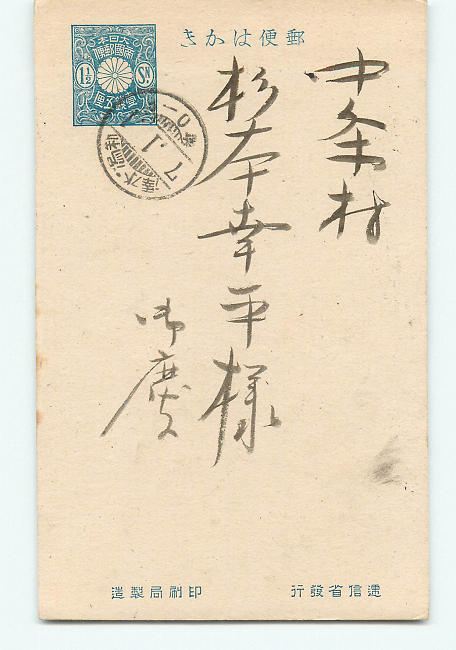 郵便はかき
大日本
帝國郵便
1½ SN.
壹錢五厘
中条村
杉本幸平様
御慶
遞信省發行
印刷局製造